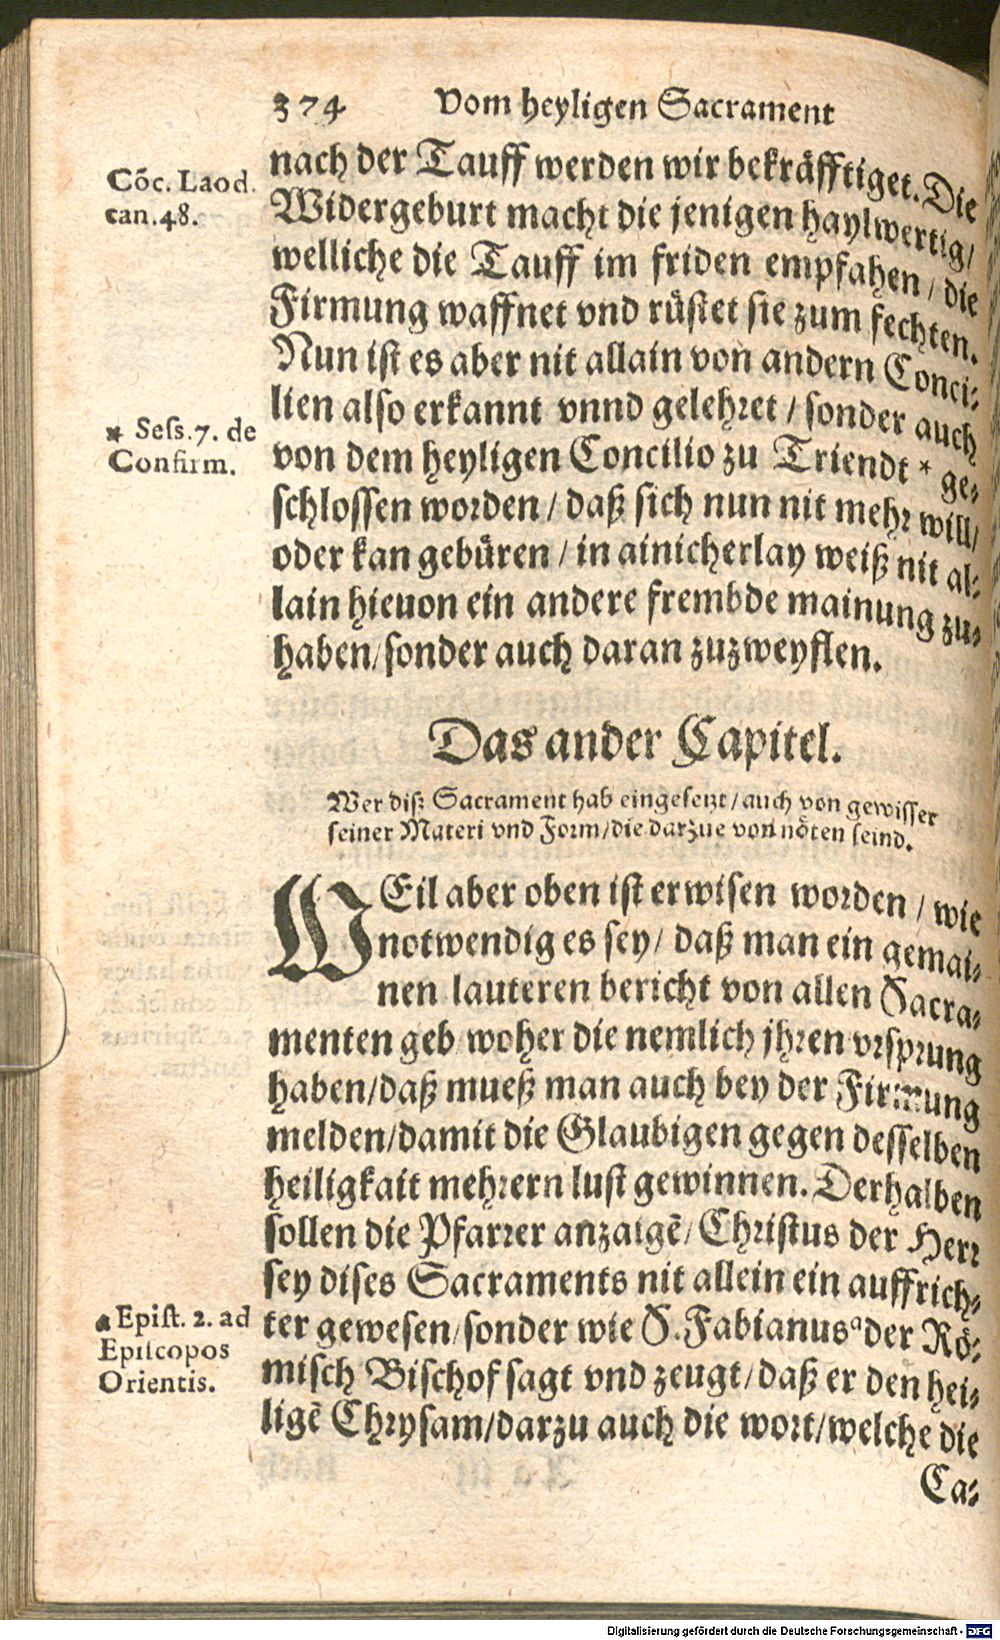 374 Vom heyligen Sacrament
nach der Tauff werden wir bekräfftiget. Die
Cõc. Laod.
can. 48.
Widergeburt macht die jenigen haylwertig/
welliche die Tauff im friden empfahen / die
Firmung waffnet vnd rüstet sie zum fechten.
Nun ist es aber nit allain von andern Conci-
lien also erkannt vnnd gelehret / sonder auch
* Sess. 7. de
Confirm.
von dem heyligen Concilio zu Triendt * ge-
schlossen worden / daß sich nun nit mehr will/
oder kan gebüren / in ainicherlay weiß nit al-
lain hieuon ein andere frembde mainung zu-
haben/sonder auch daran zuzweyflen.
Das ander Capitel.
Wer diß Sacrament hab eingesetzt/auch von gewisser
seiner Materi vnd Form/die darzue von nöten seind.
WEil aber oben ist erwisen worden / wie
notwendig es sey/ daß man ein gemai-
nen lauteren bericht von allen Sacra-
menten geb woher die nemlich jhren vrsprung
haben/daß mueß man auch bey der Firmung
melden/damit die Glaubigen gegen desselben
heiligkait mehrern lust gewinnen. Derhalben
sollen die Pfarrer anzaigẽ/Christus der Herr
sey dises Sacraments nit allein ein auffrich-
a Epist. 2. ad
Episcopos
Orientis.
ter gewesen/sonder wie S. Fabianus a der Rö-
misch Bischof sagt vnd zeugt/daß er den hei-
ligẽ Chrysam/darzu auch die wort/welche die
Ca-
Digitalisierung gefördert durch die Deutsche Forschungsgemeinschaft - DFG